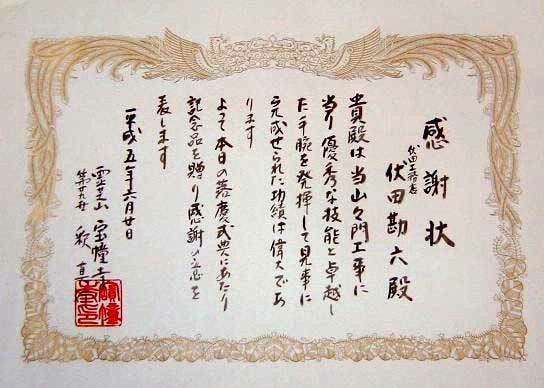 感謝状
伏田工務店
伏田勘六殿
貴殿は当山々門工事に
当り優秀な技能と卓越し
た手腕を発揮して見事に
完成せられた功績は偉大であ
ります
よって本日の落慶式典にあたり
記念品を贈り感謝の意を
表します
平成五年六月廿日
霊芝山 宝幢寺
釈真